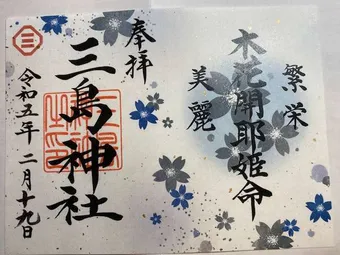 繁栄
木花開耶姫命
美麗
奉拝
三島神社
令和五年 二月十九日